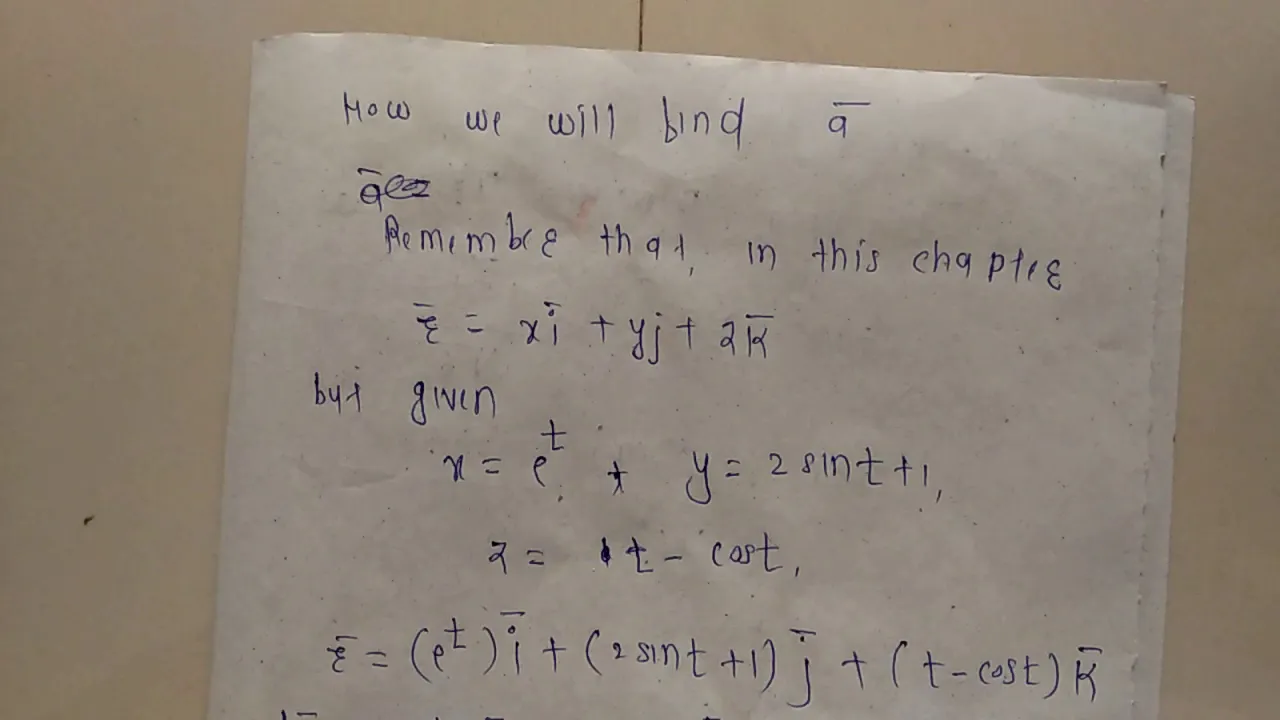 How we will find a̅
a̅
Remember that, in this chapter
r̅ = xi̅ + yj̅ + zk̅
but given
x = e^t, y = 2 sint + 1,
z = t - cost,
r̅ = (e^t) i̅ + (2 sint + 1) j̅ + (t - cost) k̅